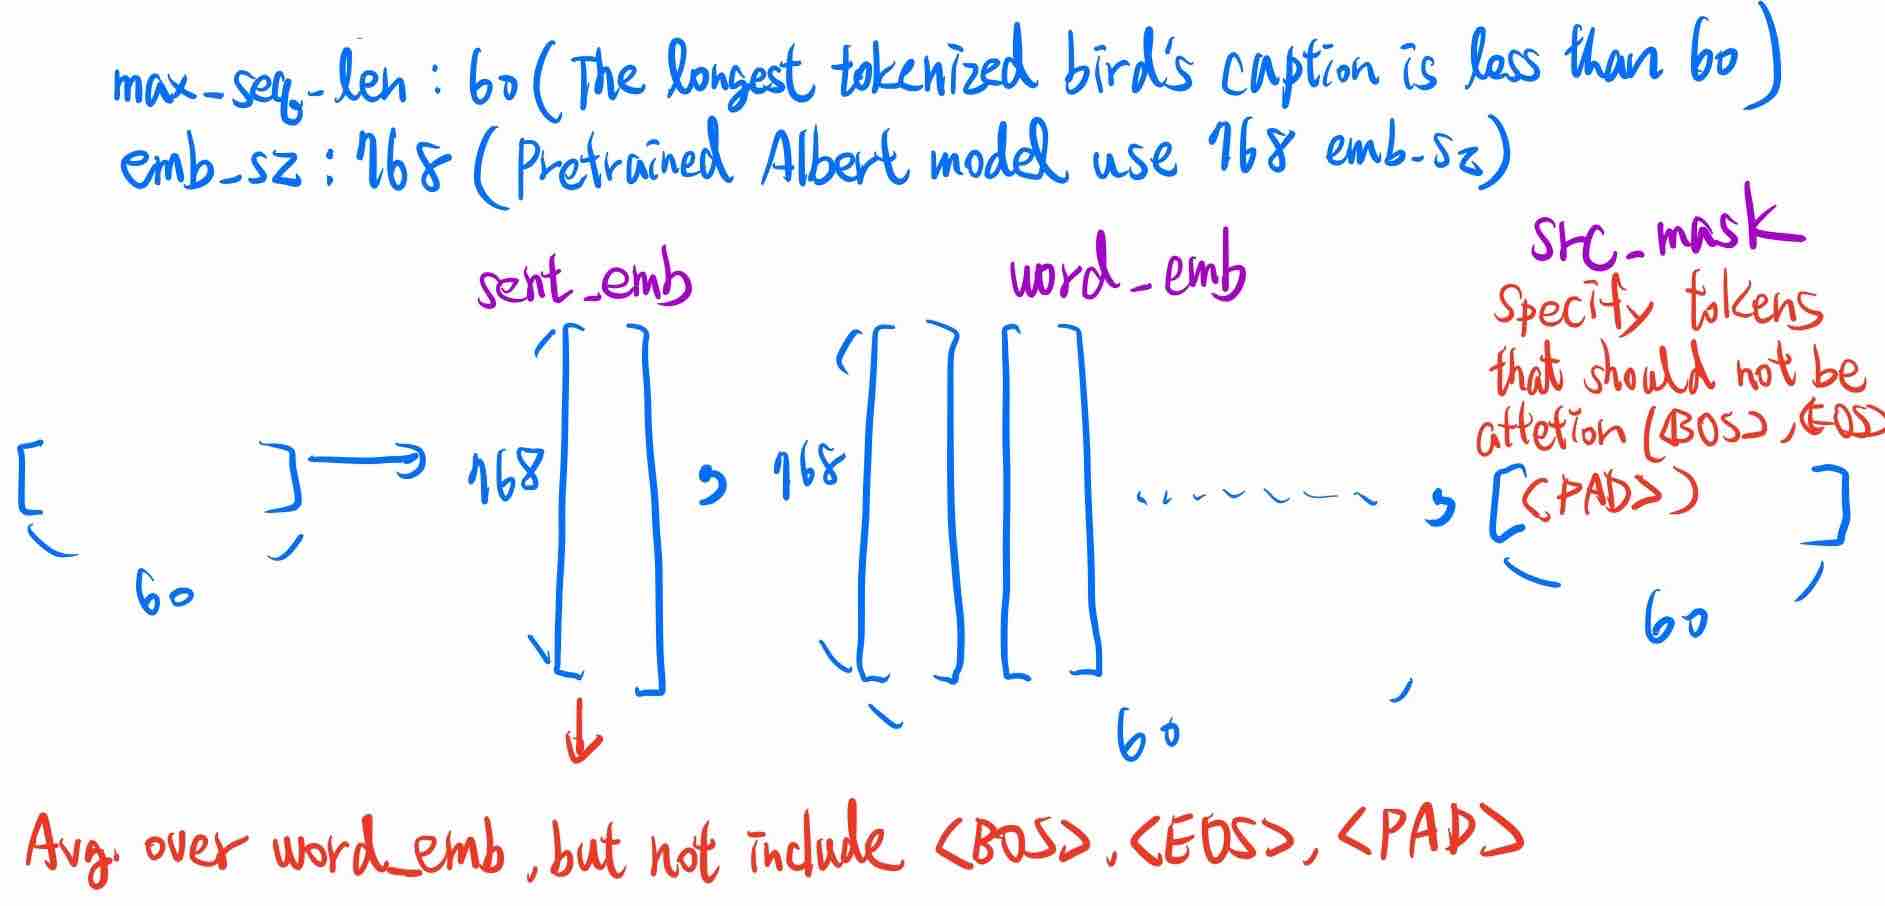 max_seq_len : 60 (The longest tokenized bird's caption is less than 60)
emb_sz : 768 (Pretrained Albert model use 768 emb_sz)
sent_emb
word_emb
src_mask
Specify tokens
that should not be
attetion (<BOS>, <EOS>
<PAD>)
768
,
768
,
60
60
60
Avg. over word_emb, but not include <BOS>, <EOS>, <PAD>